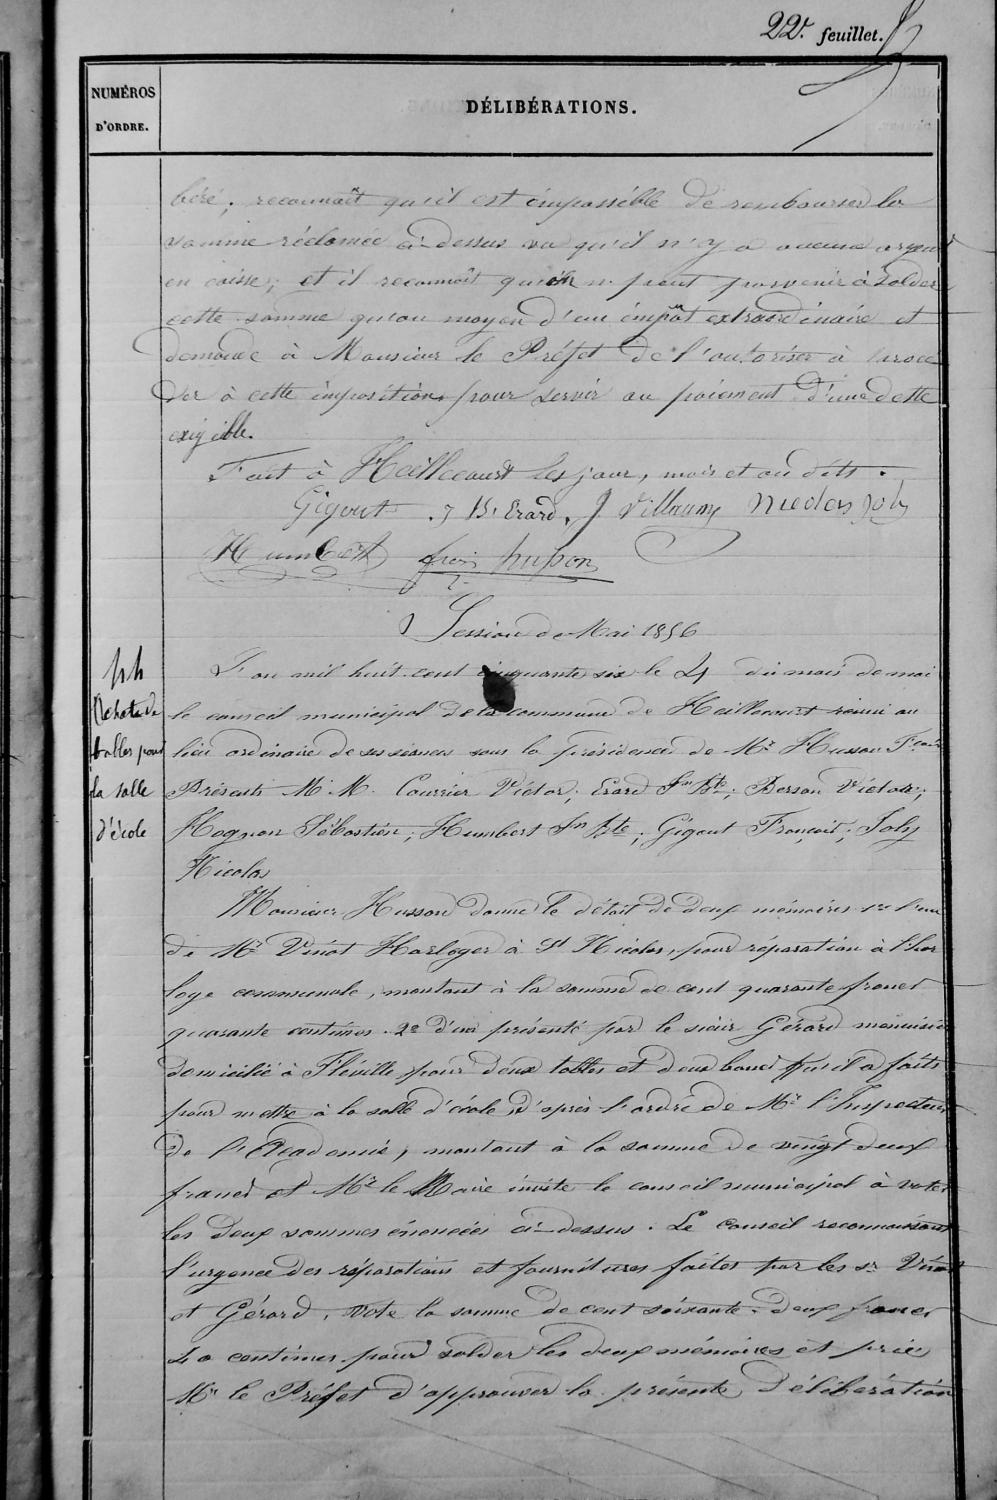 22e feuillet.
NUMÉROS D'ORDRE.
DÉLIBÉRATIONS.
béré ; reconnaît qu'il est impossible de rembourser la
somme réclamée ci-dessus vu qu'il n'y a aucun argent
en caisse ; et il reconnaît qu'on ne peut parvenir à solder
cette somme qu'au moyen d'un impôt extraordinaire et
demande à Monsieur le Préfet de l'autoriser à procé
der à cette imposition pour servir au paiement d'une dette
exigible.
Fait à Heillecourt les jour, mois et an dits.
Gigout . J B. Erard. J Villaume Nicolas Joly
Humbert husson
Session de Mai 1856
44
Achat de
tables pour
la salle
d'école
L'an mil huit cent cinquante six le 4 du mois de mai
le conseil municipal de la commune de Heillecourt réuni au
lieu ordinaire de ses séances sous la présidence de Mr Husson
Présents M.M. Courrier Victor ; Erard Jn Bte ; Berson Victor ;
Hognon Sébastien ; Humbert Jn Bte ; Gigout François ; Joly
Nicolas
Monsieur Husson donne le détail de deux mémoires 1er l'un
de Mr Vinot Horloger à St Nicolas, pour réparation à l'hor
loge communale, montant à la somme de cent quarante francs
quarante centimes. 2e d'un présenté par le sieur Gérard menuisier
domicilié à Fléville pour deux tables et deux bancs qu'il a faits
pour mettre à la salle d'école, d'après l'ordre de Mr l'Inspecteur
de l'Academie, montant à la somme de vingt deux
francs et Mr le Maire invite le conseil municipal à voter
les deux sommes énoncées ci-dessus. Le conseil reconnaissant
l'urgence des réparations et fournitures faites par les sr Vinot
et Gérard, vote la somme de cent soixante-deux francs
40 centimes pour solder les deux mémoires et prie
Mr le Préfet d'approuver la présente Délibération